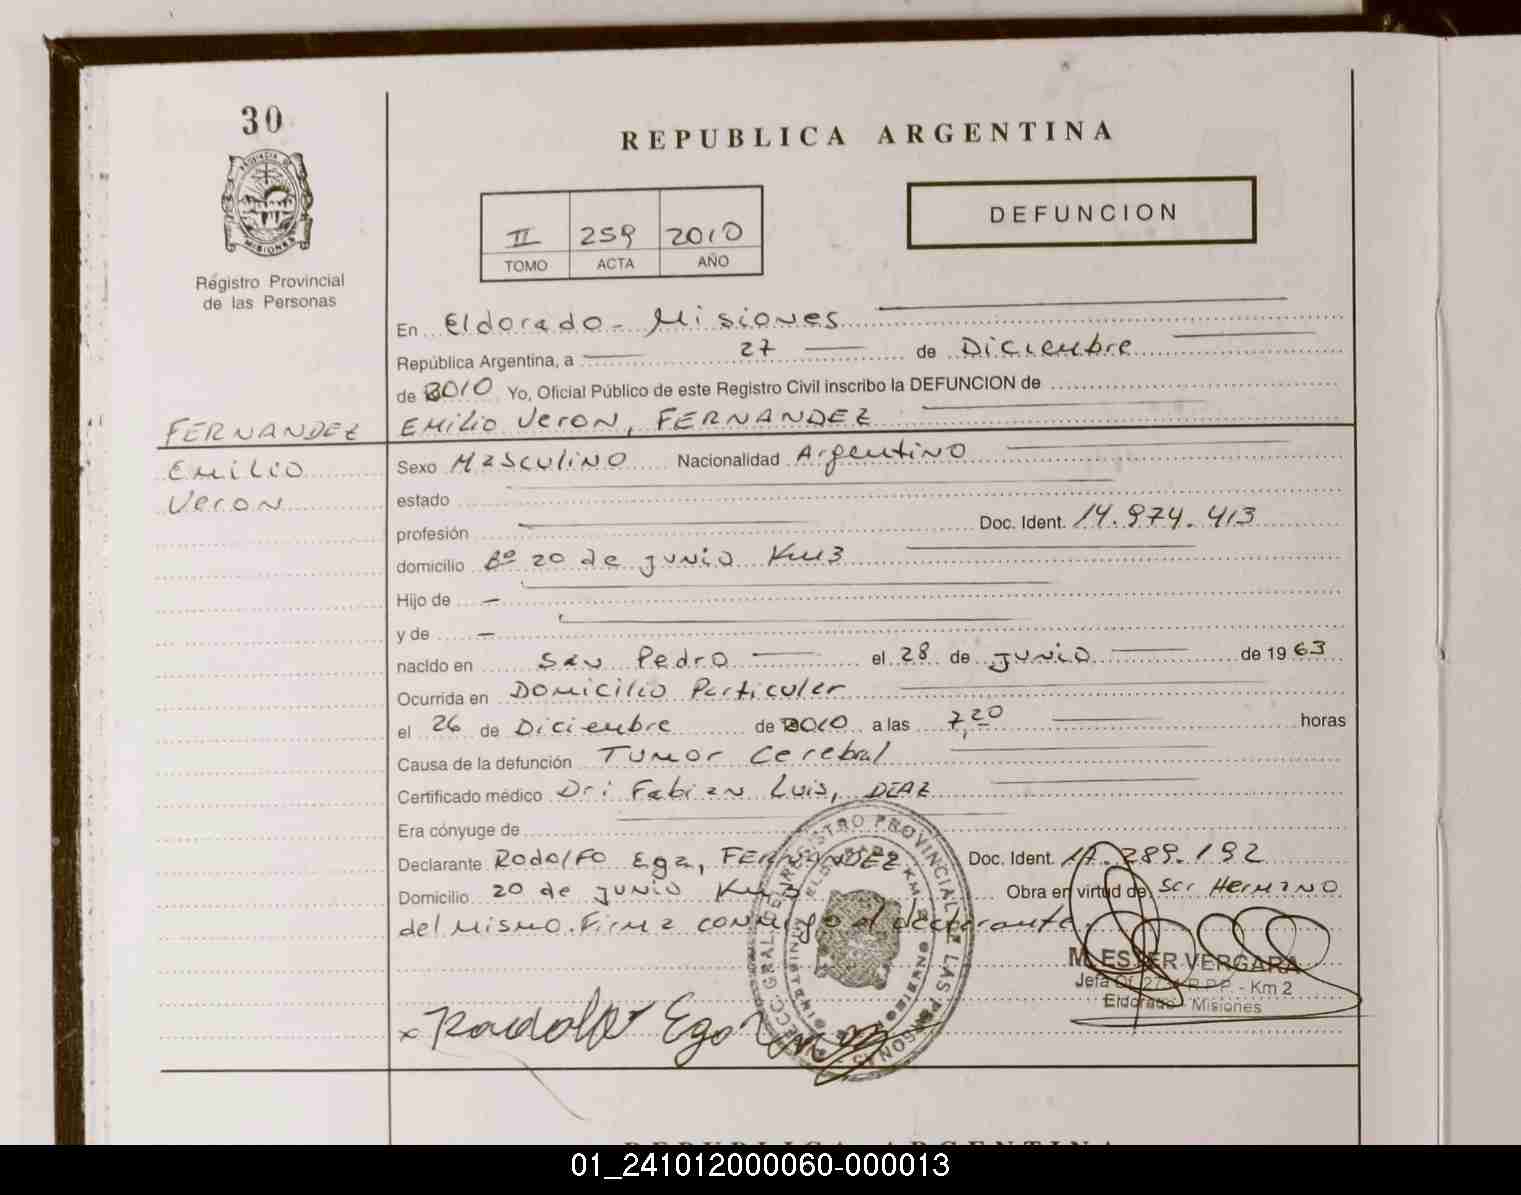 30
PROVINCIA DE
MISIONES
Registro Provincial
de las Personas
REPUBLICA ARGENTINA
II 259 2010
TOMO ACTA AÑO
DEFUNCION
En Eldorado - Misiones
República Argentina, a 27 de Diciembre
de 2010 Yo, Oficial Público de este Registro Civil inscribo la DEFUNCION de
FERNANDEZ
Emilio Veron, FERNANDEZ
Emilio
Veron
Sexo Masculino Nacionalidad Argentino
estado
profesión Doc. Ident. 14.974.413
domicilio Bº 20 de junio Km3
Hijo de —
y de —
nacido en San Pedro el 28 de junio de 1963
Ocurrida en Domicilio Particular
el 26 de Diciembre de 2010 a las 7,20 horas
Causa de la defunción Tumor Cerebral
Certificado médico Dr: Fabian Luis, DIAZ
Era cónyuge de
Declarante Rodolfo Ega, FERNANDEZ Doc. Ident. 17.289.192
Domicilio 20 de junio Km3 Obra en virtud de Ser Hermano
del mismo. Firma conmigo el declarante.
REGISTRO PROVINCIAL DE LAS PERSONAS
M. ESTER VERGARA
Jefa R.P.P. - Km 2
Eldorado - Misiones
x Rodolfo Ega
REPUBLICA ARGENTINA
01_241012000060-000013